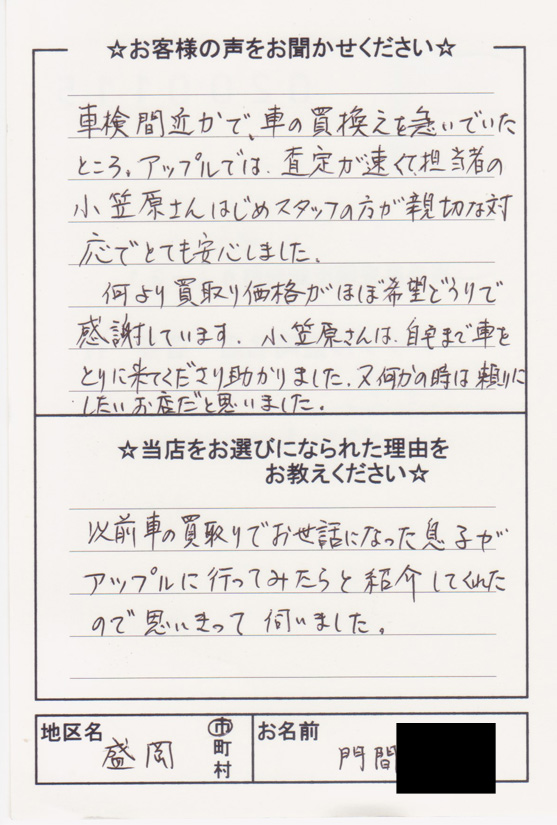 ☆お客様の声をお聞かせください☆
車検間近かで、車の買換えを急いでいた
ところ。アップルでは、査定が速くて担当者の
小笠原さんはじめスタッフの方が親切な対
応でとても安心しました。
何より買取り価格がほぼ希望どうりで
感謝しています。小笠原さんは、自宅まで車を
とりに来てくださり助かりました。又何かの時は頼りに
したいお店だと思いました。
☆当店をお選びになられた理由を
お教えください☆
以前車の買取りでお世話になった息子が
アップルに行ってみたらと紹介してくれた
ので思いきって伺いました。
地区名 盛岡 市町村 お名前 門間